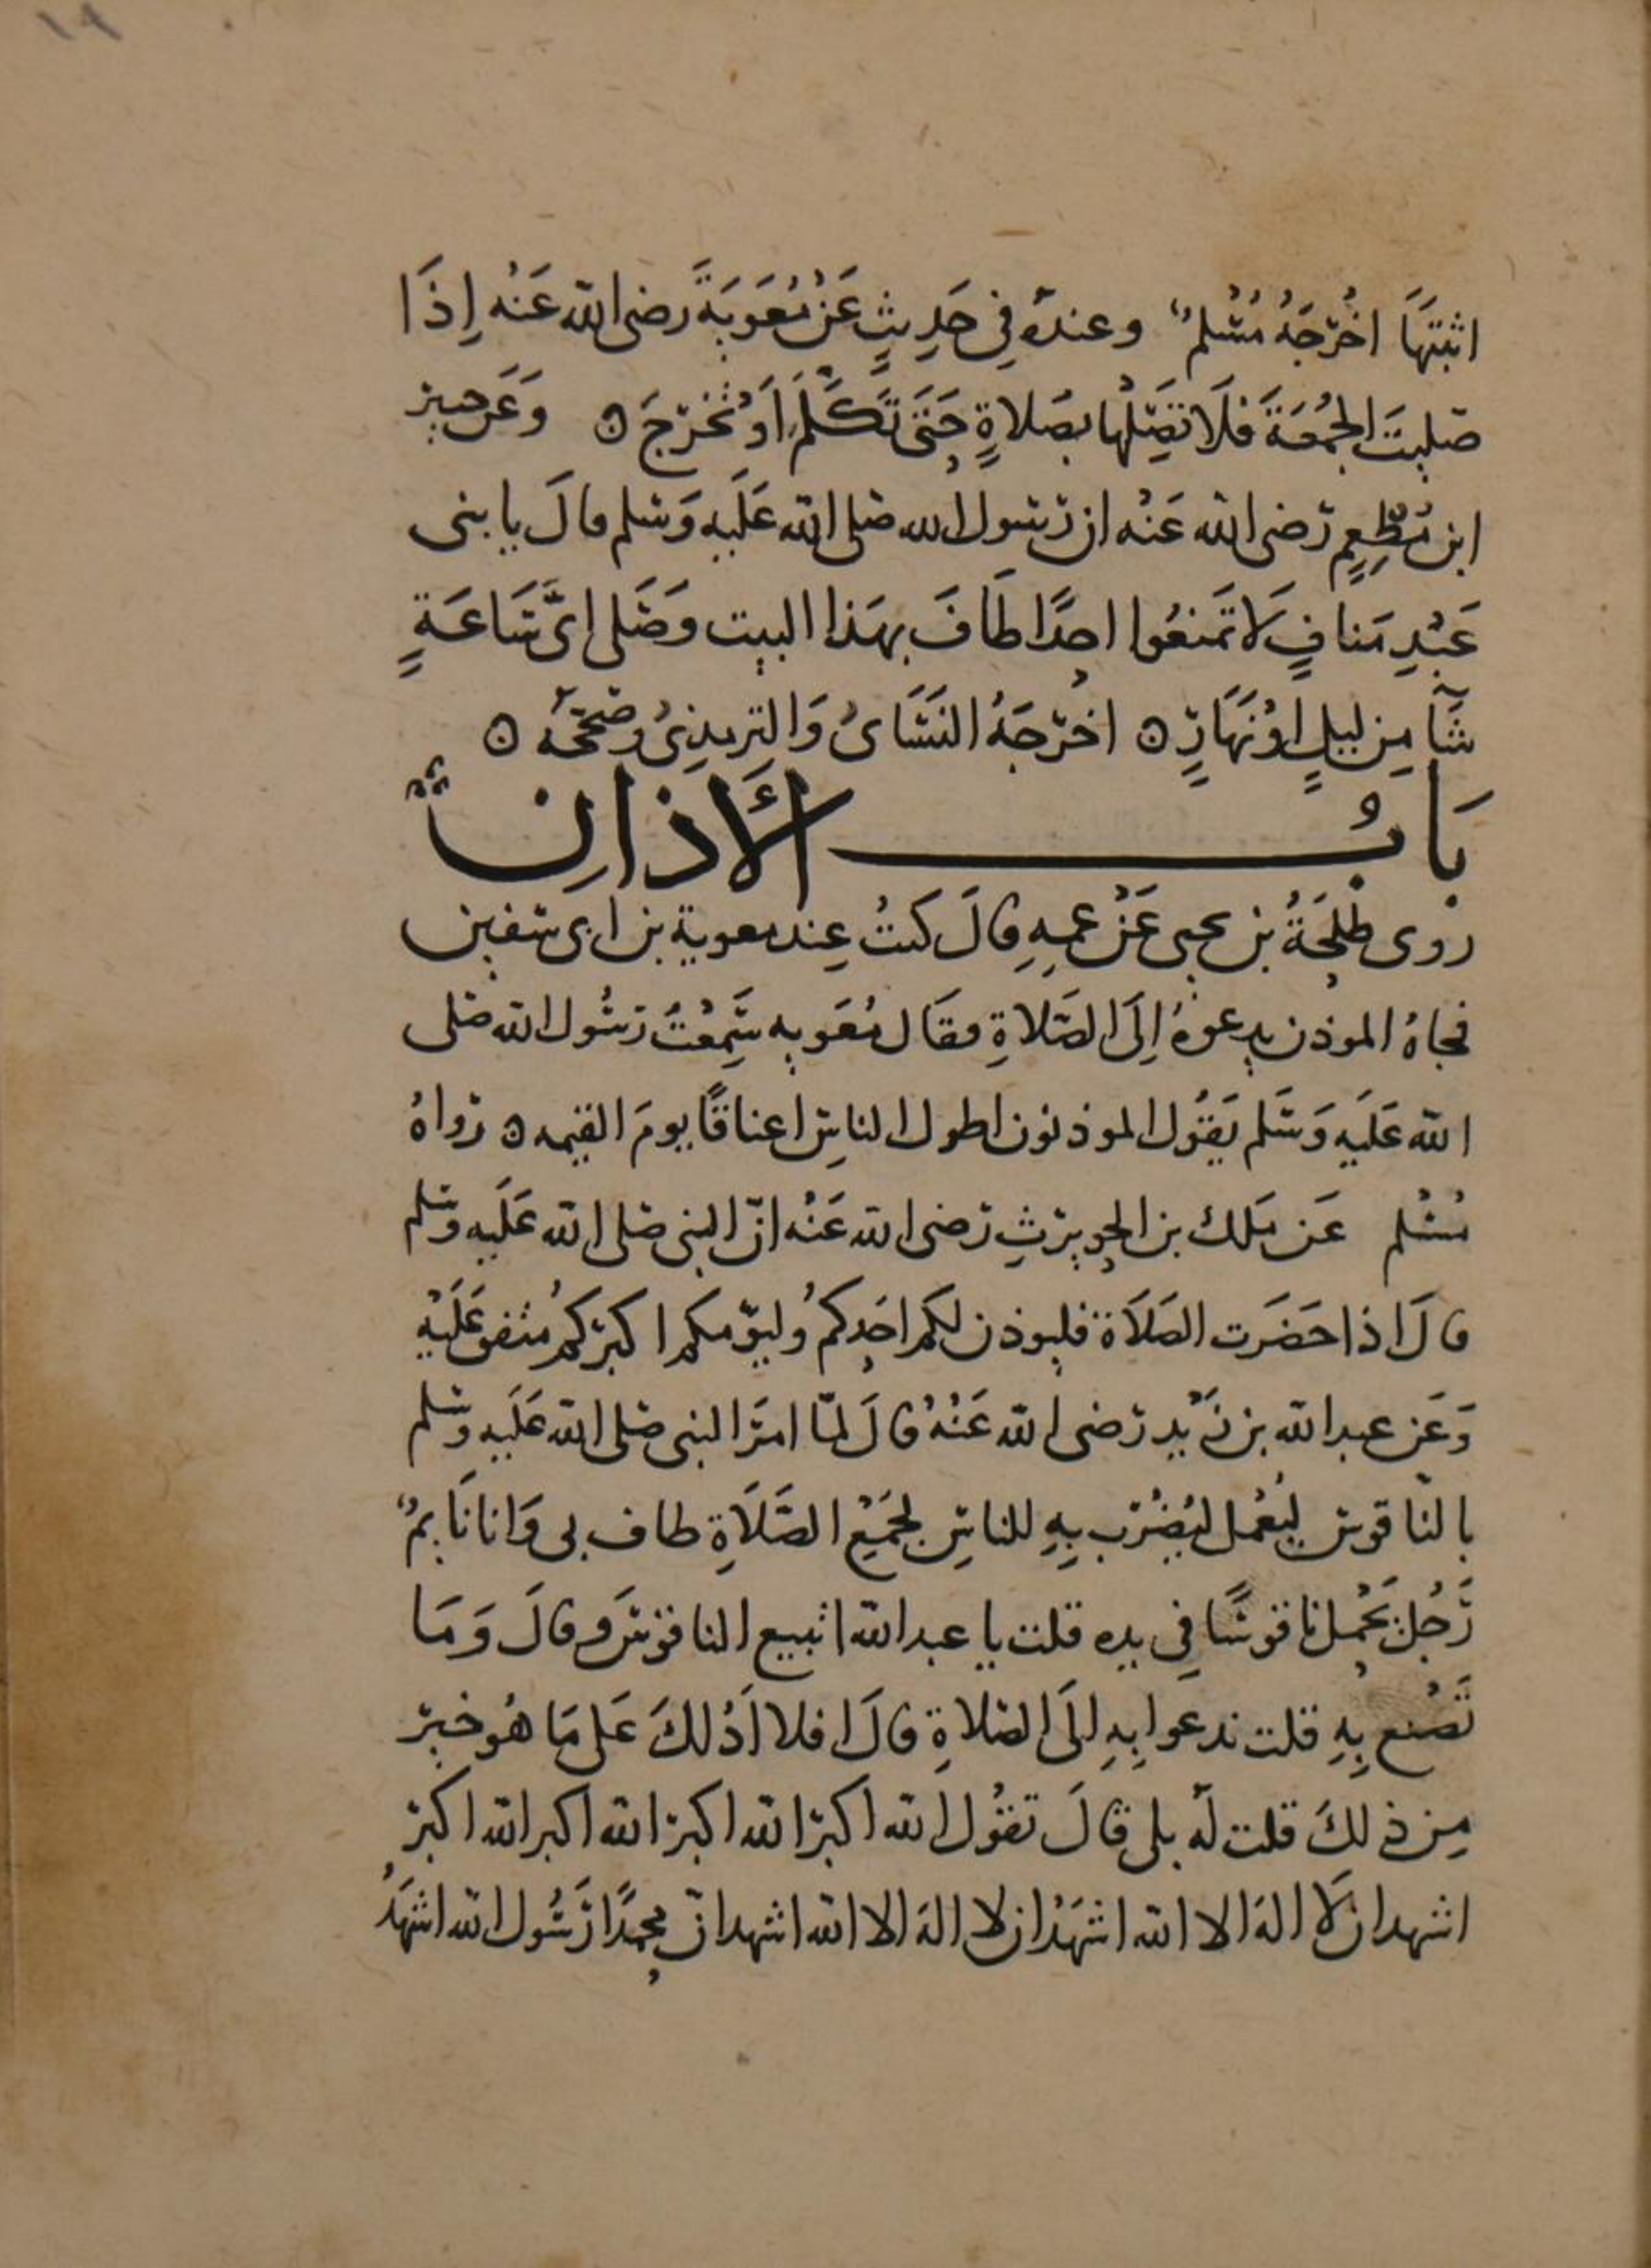 اثبتَهَا اخْرَجَهُ مُسْلمٌ وعندهُ فِي حَدِيثٍ عَنْ مُعَوِيَةَ رضى الله عَنْه اِذَا
صليتَ الجُمُعَةَ فَلَا تَصِلْها بصَلاةٍ حَتَّى تَكَلَّمَ اَوْ تَخْرُجَ ه وَعَن جبير
ابن مُطْعِمٍ رَضى الله عَنْه ان رسول الله صلى الله عَلَيهِ وَسَلم قالَ يا بنى
عَبْدِ مَنافٍ لَا تمَنعُوا احدًا طَافَ بهَذا البيت وَصَلى اىَّ سَاعَةٍ
شَآ مِن ليلٍ اوْ نَهَارٍ ه اخْرجَهُ النَسَاىُ وَالترمذِىُ وصَحّحَهُ ه
بَابُ الأَذَانِ
روى طلْحَةُ بن يحيى عَنْ عمهِ قالَ كنتُ عِند معوية بن ابى سفين
فجاهُ الموذن يدعوهُ اِلَى الصَّلاةِ فقَال مُعَويه سَمِعْتُ رسُول الله صلى
الله عَلَيهِ وَسَلم يَقُول الموذنون اطول الناسِ اعناقًا يومَ القيمه ه رواهُ
مُسْلم عَن مَلك بن الحويرثِ رضى الله عَنْه انّ النبى صلى الله عَلَيه وسلم
قالَ اذا حَضَرَت الصَلَاة فليوذن لكم احَدكمُ وليؤمكم اكبركمُ متفق عَلَيْهِ
وَعَن عبد الله بن زَيْد رَضى الله عَنْهُ قالَ لمّا امَرَ النبى صلى الله عَلَيهِ وسلم
بالنّاقوس ليُعْمل ليُضْرَب بِهِ للناسِ لجَمْعِ الصَّلَاةِ طاف بى وَانا نَايمٌ
رَجُلٌ يَحْمِل ناقوسًا فِى يده قلت يا عبد الله اتبيع الناقوْسَ وقالَ وَمَا
تَصْنع بِهِ قلت ندعوا بِهِ اِلَى الصَلَاةِ قالَ افلا اَدُلكَ عَلى مَا هُو خير
مِن ذلكَ قلت لَهُ بلى قالَ تقُول الله اكبر الله اكبر الله اكبر الله اكبر
اشهد ان لَا الهَ الا الله اشهَدُ ان لا الهَ الا الله اشهد انّ محمدًا رَسُول الله اشهَدُ